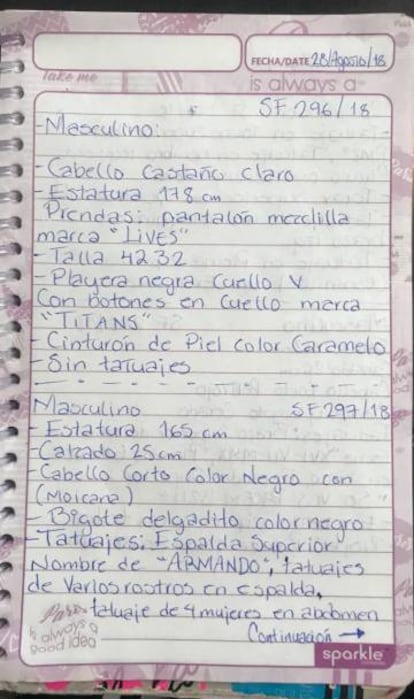 FECHA/DATE 28/Agosto/18
Take me
is always a
SF 296/18
-Masculino:
-Cabello Castaño claro
-Estatura 178 cm
Prendas: pantalon mezclilla
marca "LIVES"
-Talla 42 32
-Playera negra Cuello V
Con botones en Cuello marca
"TITANS"
-Cinturon de Piel Color Caramelo
-Sin tatuajes
Masculino SF 297/18
-Estatura 165 cm
-Calzado 25 cm
-Cabello Corto Color Negro con
(Moicana)
-Bigote delgadito color negro
-Tatuajes: Espalda Superior
Nombre de "ARMANDO", tatuajes
de Varios rostros en espalda,
tatuaje de 4 mujeres en abdomen
Continuación →
Paris
is always a
good idea
sparkle